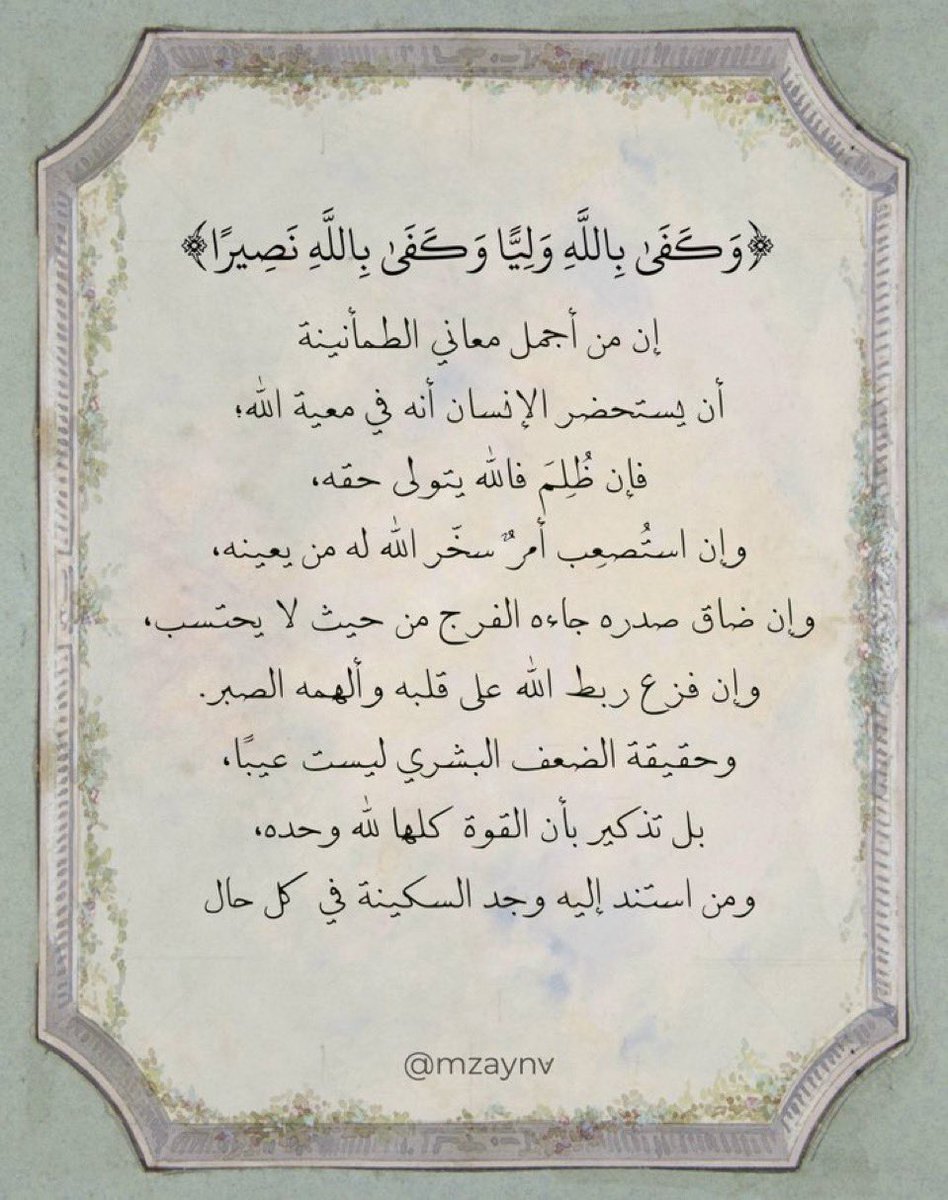 ﴿وَكَفَىٰ بِاللَّهِ وَلِيًّا وَكَفَىٰ بِاللَّهِ نَصِيرًا﴾
إن من أجمل معاني الطمأنينة
أن يستحضر الإنسان أنه في معية الله؛
فإن ظُلِمَ فالله يتولى حقه،
وإن استُصعِب أمرٌ سخّر الله له من يعينه،
وإن ضاق صدره جاءه الفرج من حيث لا يحتسب،
وإن فزع ربط الله على قلبه وألهمه الصبر.
وحقيقة الضعف البشري ليست عيبًا،
بل تذكير بأن القوة كلها لله وحده،
ومن استند إليه وجد السكينة في كل حال
@mzaynv